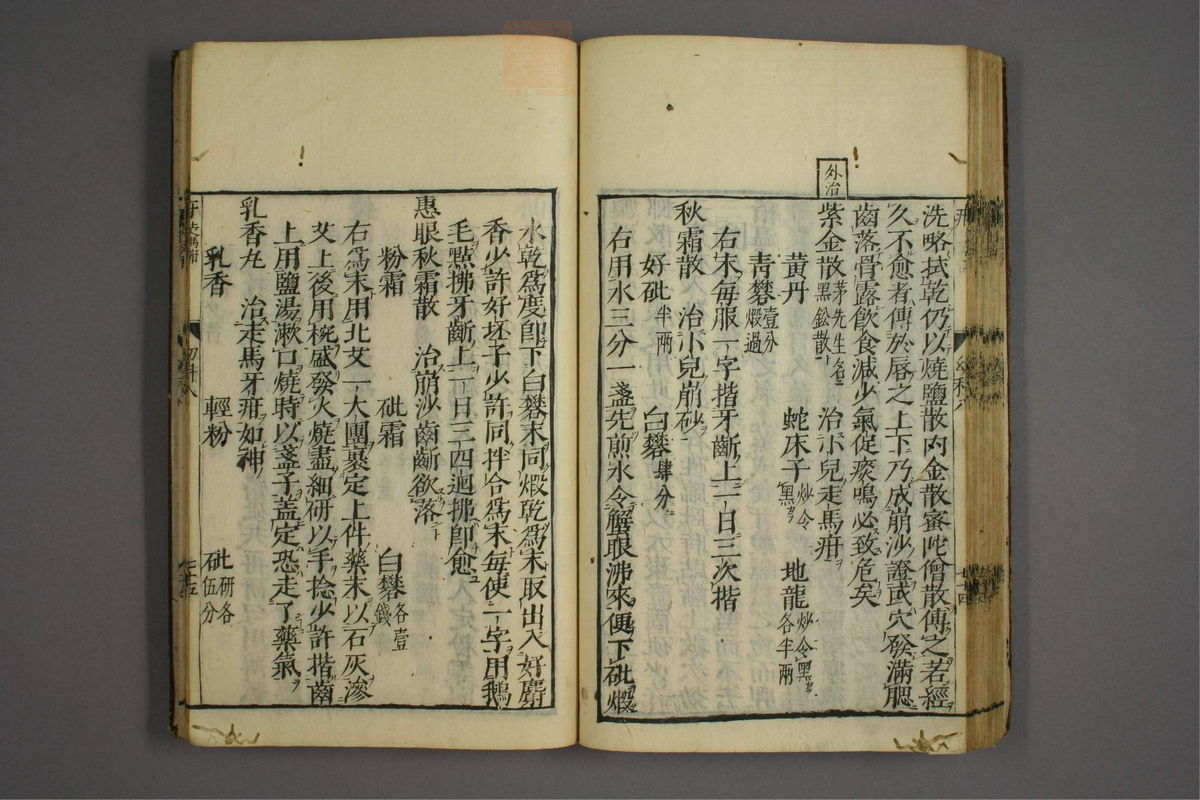 外治
洗略拭乾仍以燒鹽散內金散審陀僧散傅之若經
久不愈者傅於唇之上下乃成崩沙證或穴發滿腮
齒落骨露飲食減少氣促痰鳴必致危矣
紫金散 茅先生名二黑鈆散 治小兒走馬疳
黃丹 蛇床子 炒令黑 地龍 炒令黑各半兩
青礬 壹分煆過
右末每服一字揩牙齗上一日三次揩
秋霜散 治小兒崩砂
好砒 半兩 白礬 肆分
右用水三分一盞先煎水令蟹眼沸來便下砒煆
水乾爲度卽下白礬末同煆乾爲末取出入好麝
香少許好坯子少許同拌合爲末每使一字用鵝
毛㸃拂牙齗上一日三四迴拂卽愈
惠眼秋霜散 治崩沙齒齗欲落
粉霜 砒霜 白礬 各壹錢
右爲末用北艾一大團裹定上件藥末以石灰滲
艾上後用椀盛發火燒盡細研以手捻少許揩齒
上用鹽湯漱口燒時以盞子蓋定恐走了藥氣
乳香丸 治走馬牙疳如神
乳香 輕粉 砒 研各伍分